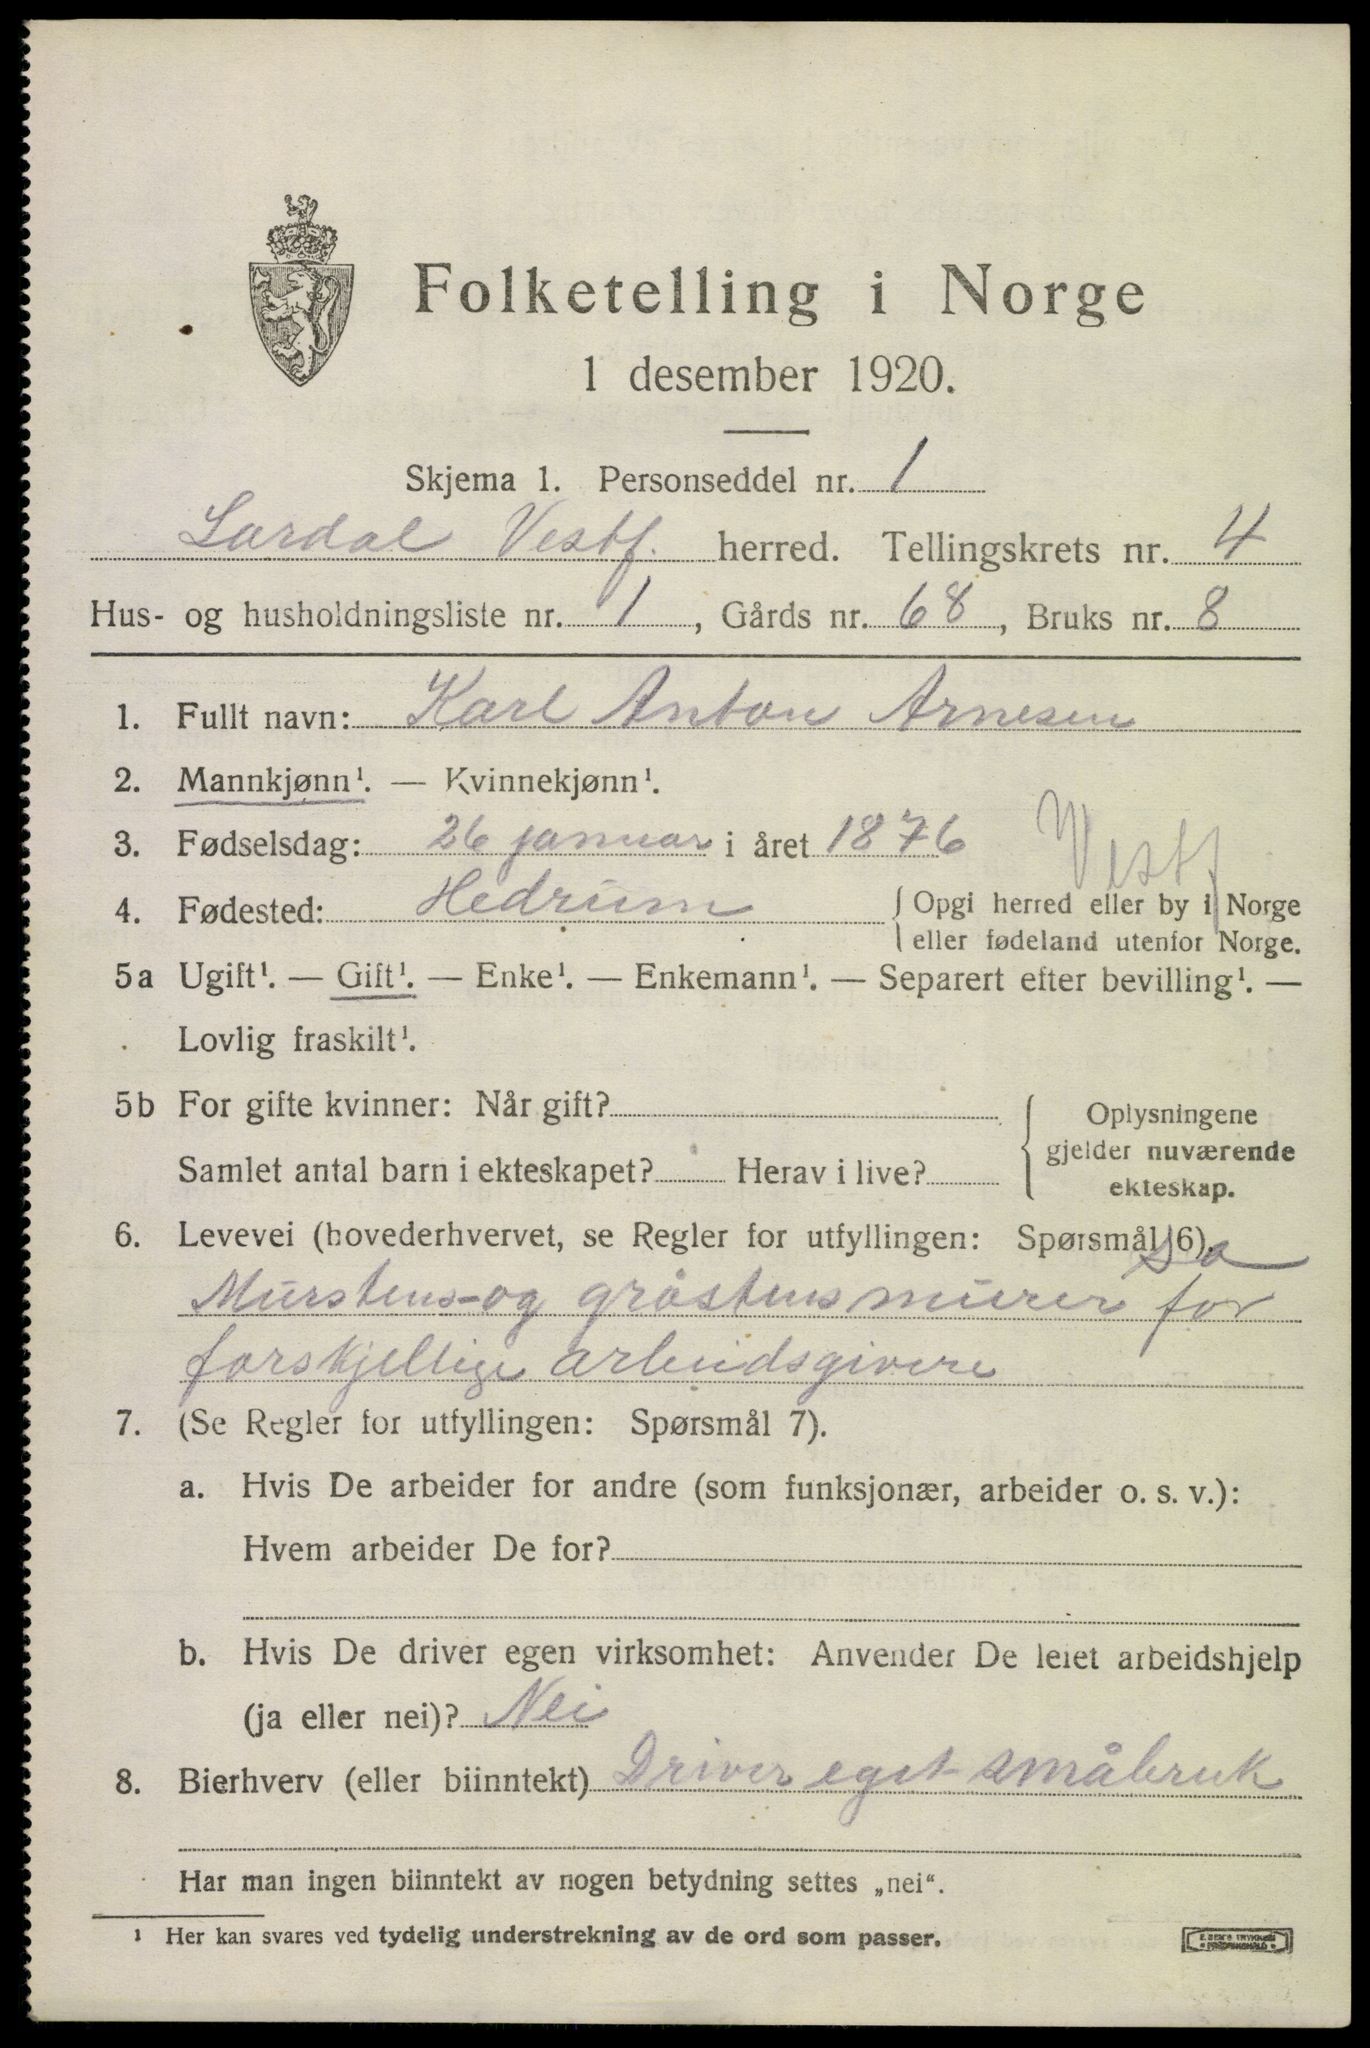 Folketelling i Norge
1 desember 1920.
Skjema 1. Personseddel nr. 1
Lardal Vestf. herred. Tellingskrets nr. 4
Hus- og husholdningsliste nr. 1, Gårds nr. 68, Bruks nr. 8
1. Fullt navn: Karl Anton Arnesen
2. Mannkjønn¹. — Kvinnekjønn¹.
3. Fødselsdag: 26 januar i året 1876
Vestf
4. Fødested: Hedrum { Opgi herred eller by i Norge
eller fødeland utenfor Norge.
5a Ugift¹. — Gift¹. — Enke¹. — Enkemann¹. — Separert efter bevilling¹. —
Lovlig fraskilt¹.
5b For gifte kvinner: Når gift? { Oplysningene
gjelder nuværende
Samlet antal barn i ekteskapet? Herav i live?
ekteskap.
6. Levevei (hovederhvervet, se Regler for utfyllingen: Spørsmål 6).
Murstens- og gråstensmurer for
forskjellige arbeidsgivere
7. (Se Regler for utfyllingen: Spørsmål 7).
a. Hvis De arbeider for andre (som funksjonær, arbeider o. s. v.):
Hvem arbeider De for?
b. Hvis De driver egen virksomhet: Anvender De leiet arbeidshjelp
(ja eller nei)? Nei
8. Bierhverv (eller biinntekt) Driver eget småbruk
Har man ingen biinntekt av nogen betydning settes „nei“.
¹ Her kan svares ved tydelig understrekning av de ord som passer.